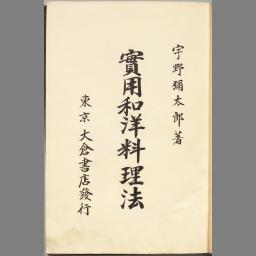 宇野彌太郎著
實用和洋料理法
東京大倉書店發行